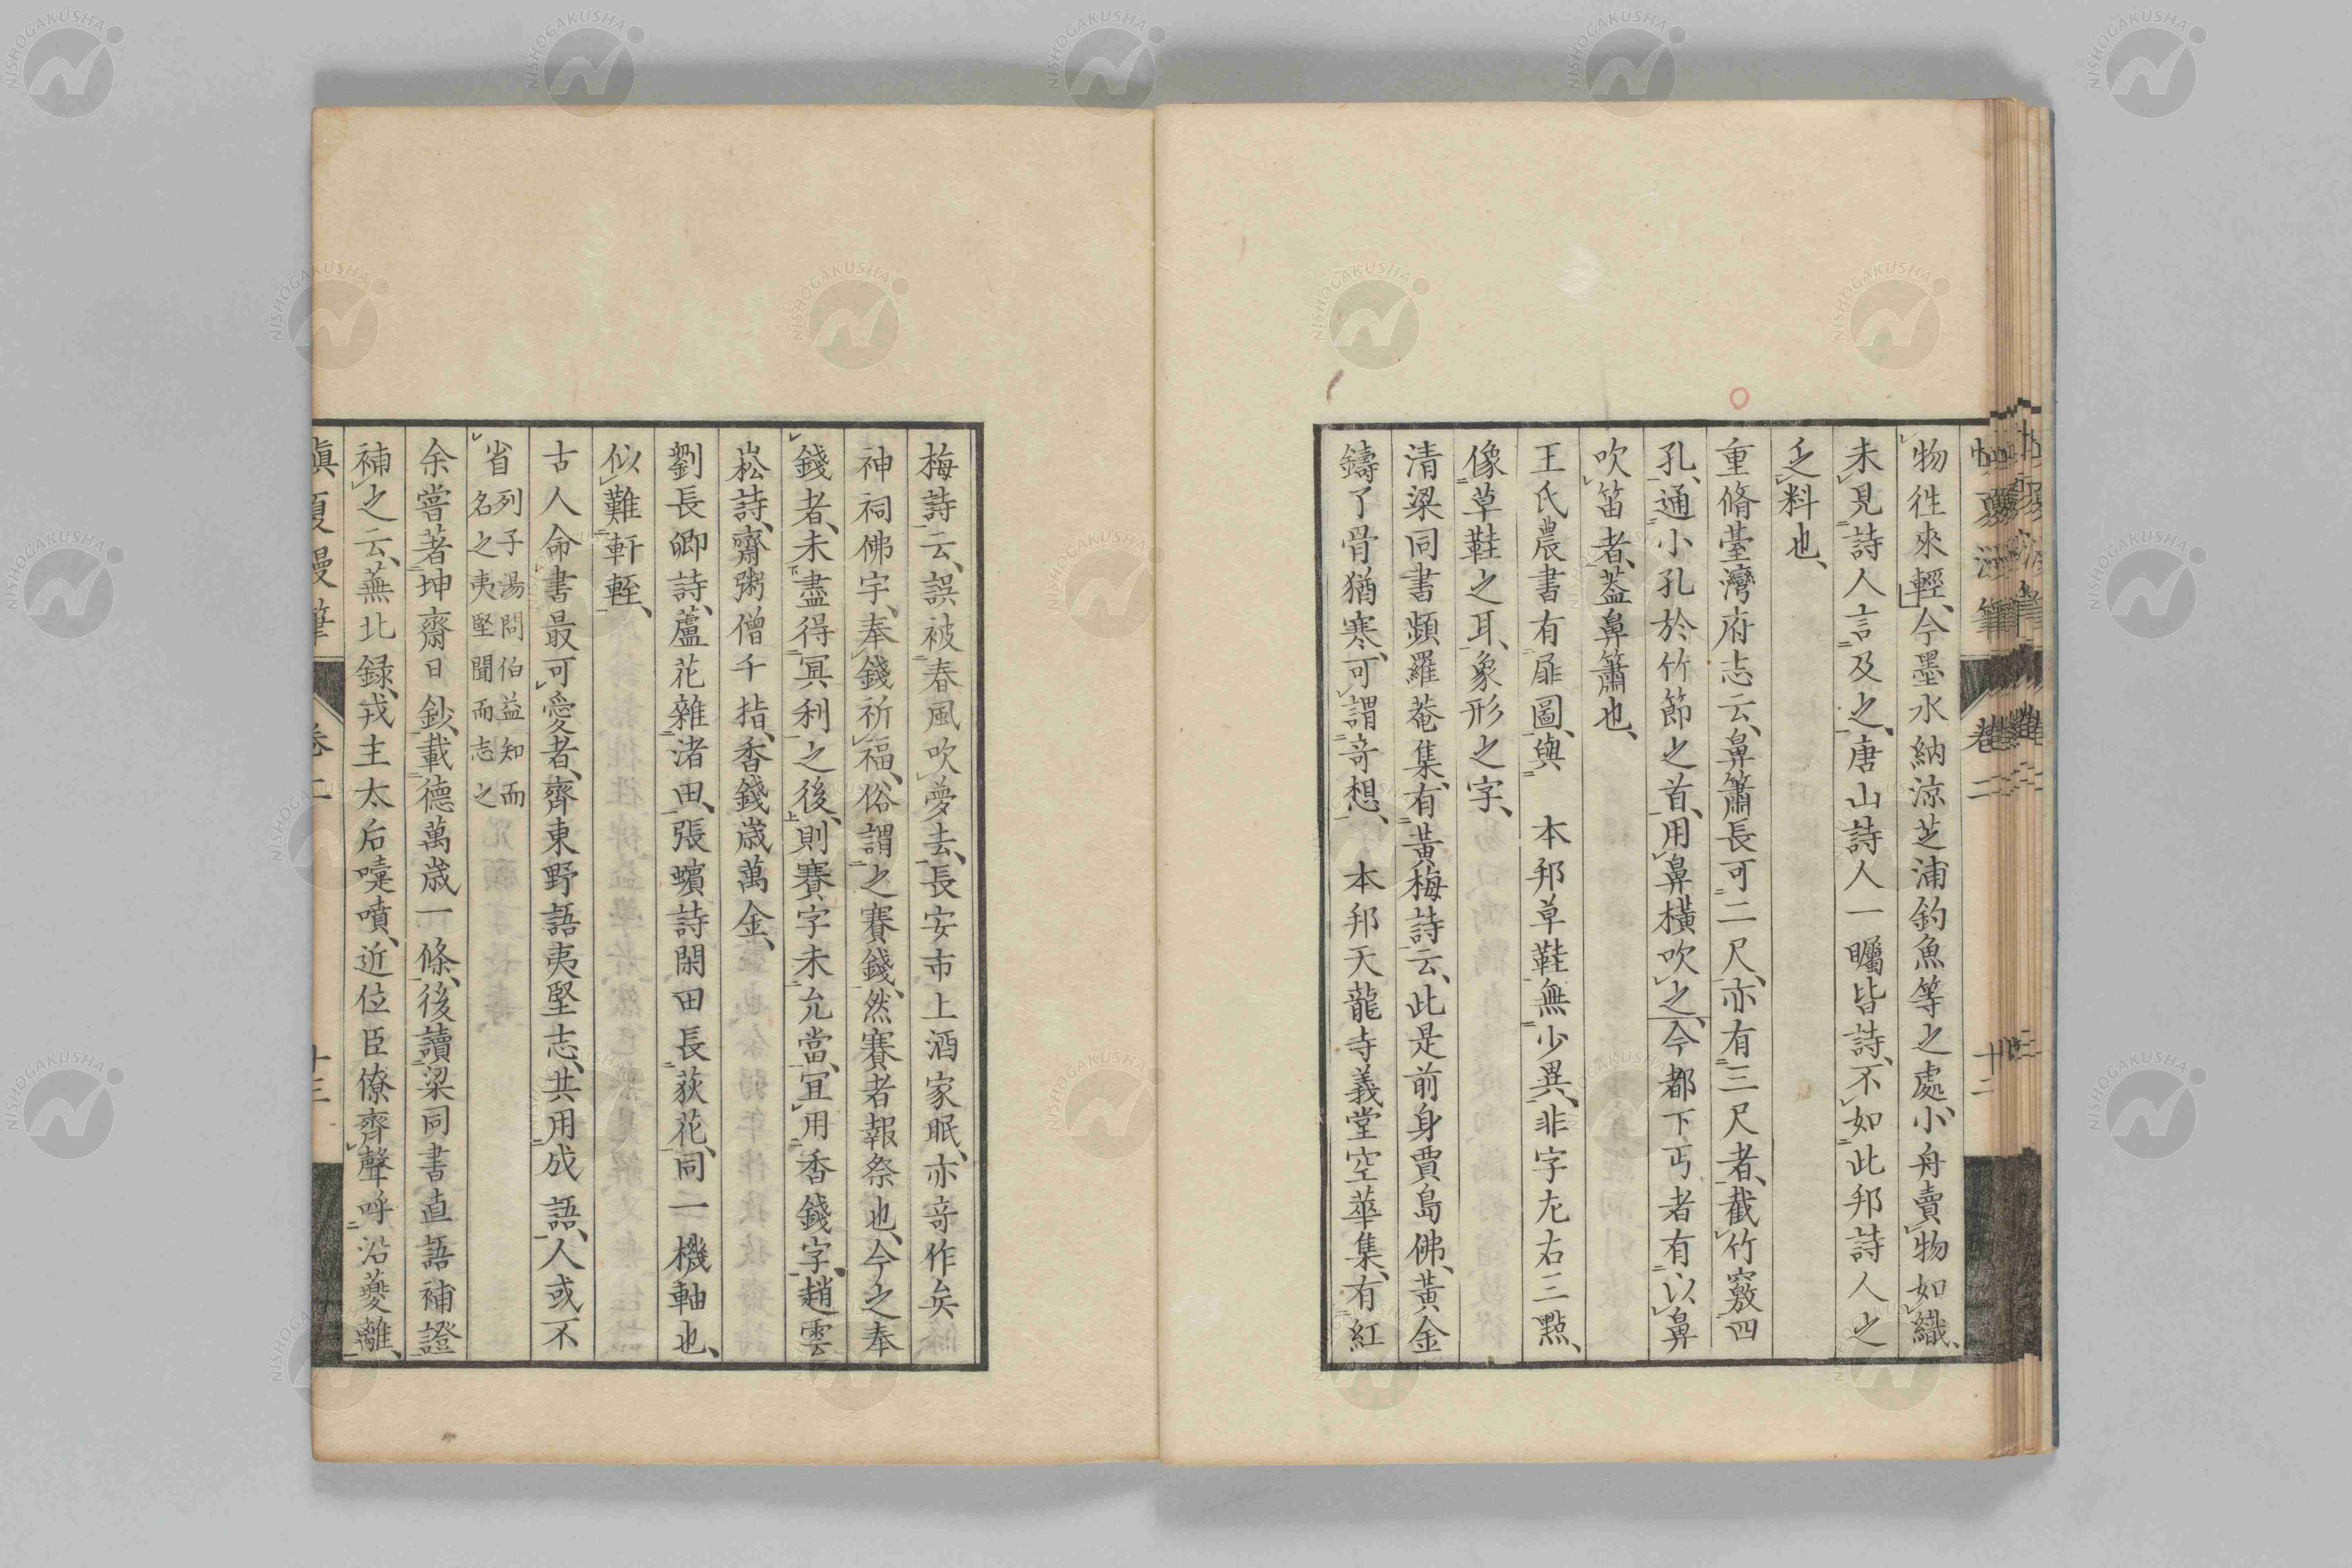 物徃來輕、今墨水納涼芝浦釣魚等之處、小舟賣物如織、
未見詩人言及之、唐山詩人一矚皆詩、不如此邦詩人之
乏料也、
重脩臺灣府志云、鼻簫長可二尺、亦有三尺者、截竹竅四
孔、通小孔於竹節之首、用鼻橫吹之、今都下丐者有以鼻
吹笛者、蓋鼻簫也、
王氏農書有屝圖、與 本邦草鞋無少異、非字左右三點、
像草鞋之耳、象形之字、
清梁同書頻羅菴集、有黃梅詩云、此是前身賈島佛、黃金
鑄了骨猶寒、可謂奇想、 本邦天龍寺義堂空華集、有紅
梅詩云、誤被春風吹夢去、長安市上酒家眠、亦奇作矣
神祠佛宇、奉錢祈福、俗謂之賽錢、然賽者報祭也、今之奉
錢者、未盡得冥利之後、則賽字未允當、宜用香錢字、趙雲
崧詩、齋粥僧千指、香錢歲萬金、
劉長卿詩、蘆花雜渚田、張蠙詩閑田長荻花、同一機軸也、
似難軒輊、
古人命書最可愛者、齊東野語夷堅志、共用成語、人或不
省 列子湯問伯益知而
名之夷堅聞而志之
余嘗著坤齋日鈔、載德萬歲一條、後讀梁同書直語補證
補之云、蕪北録、戎主太后嚏噴、近位臣僚齊聲呼治夔離、
愼夏漫筆 卷二 十三
NISHOGAKUSHA